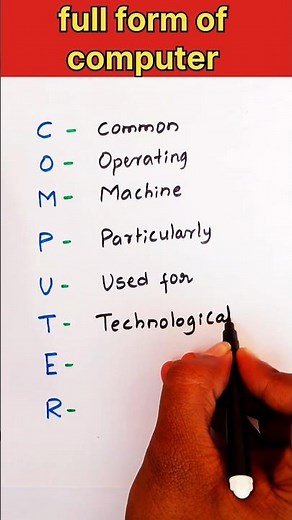 full form of
computer
C - Common
O - Operating
M - Machine
P - Particularly
U - Used for
T - Technological
E -
R -